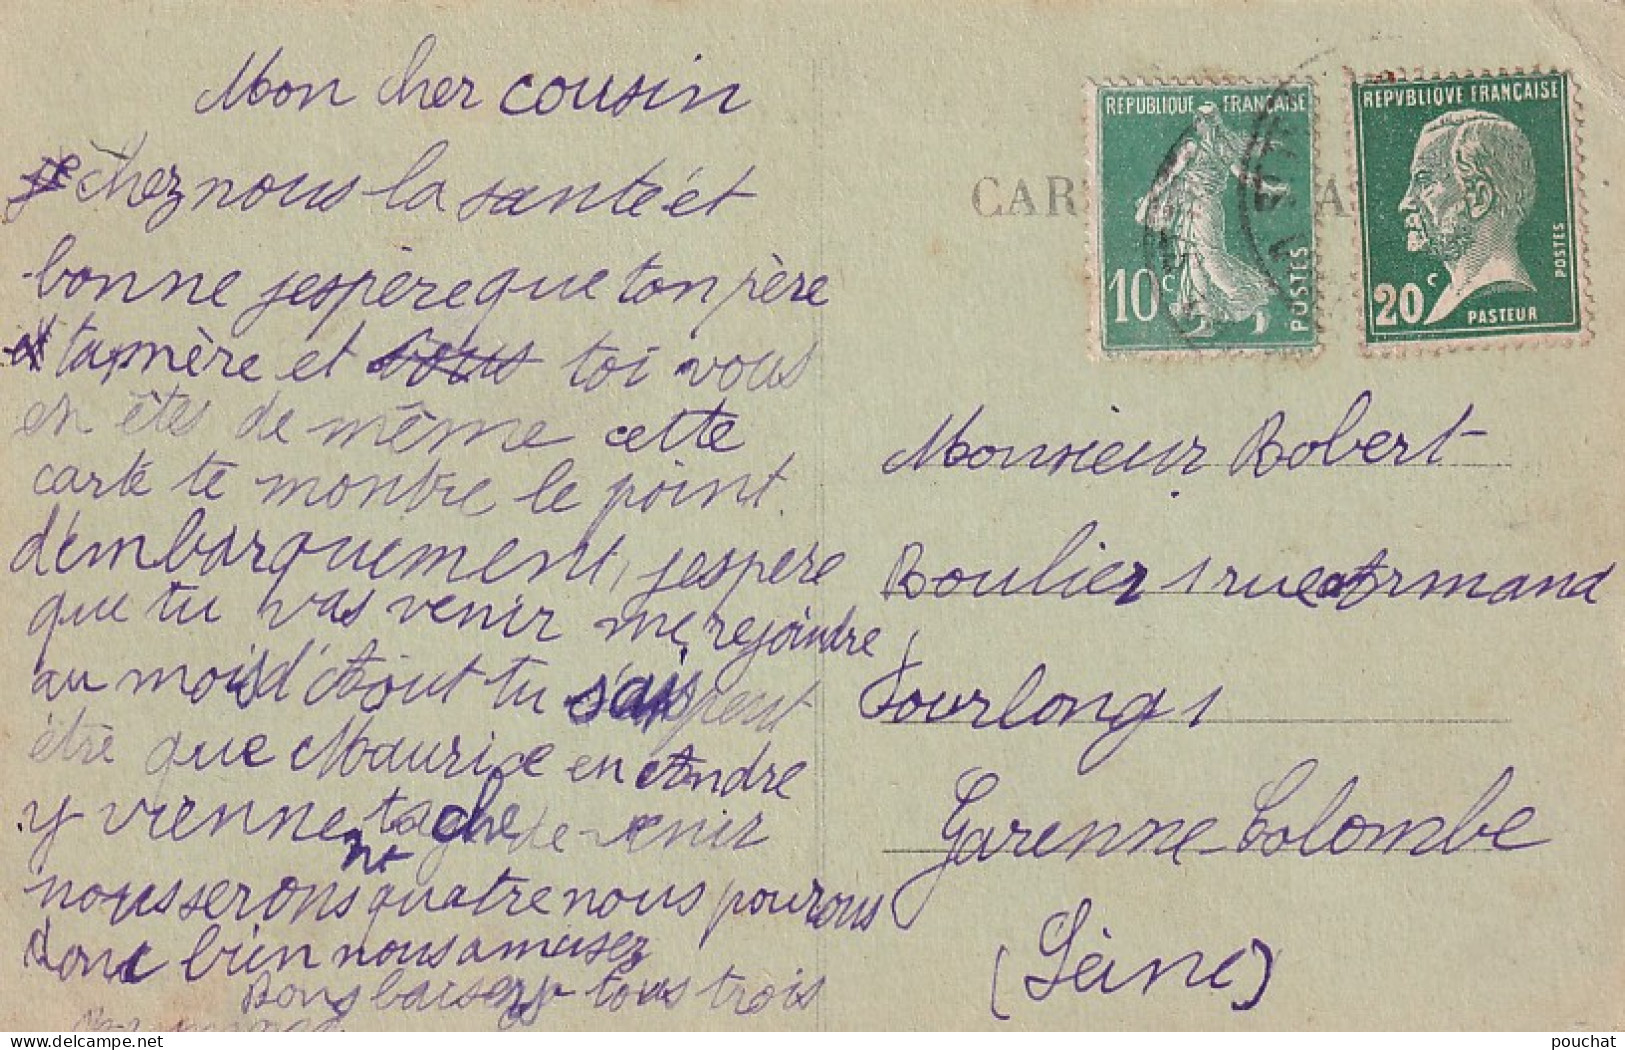 Mon cher cousin
chez nous la santé ét
bonne jespère que ton père
et ta mère et vous toi vous
en êtes de même cette
carte te montre le point
d'embarquement, jespère
que tu vas venir me rejoindre
au mois d'Aôut tu sais peut
être que Maurice en Andre
y viennent tache de venir
nous serons quatre nous pourons
donc bien nous amusez
Bons baisers tous trois
CAR A
REPUBLIQUE FRANÇAISE
10c
POSTES
REPVBLIQVE FRANÇAISE
20c
PASTEUR
POSTES
Monsieur Robert
Boulier 1 rue Armand
Fourlong 1
Garenne-Colombe
(Seine)
delcampe.net
pouchat